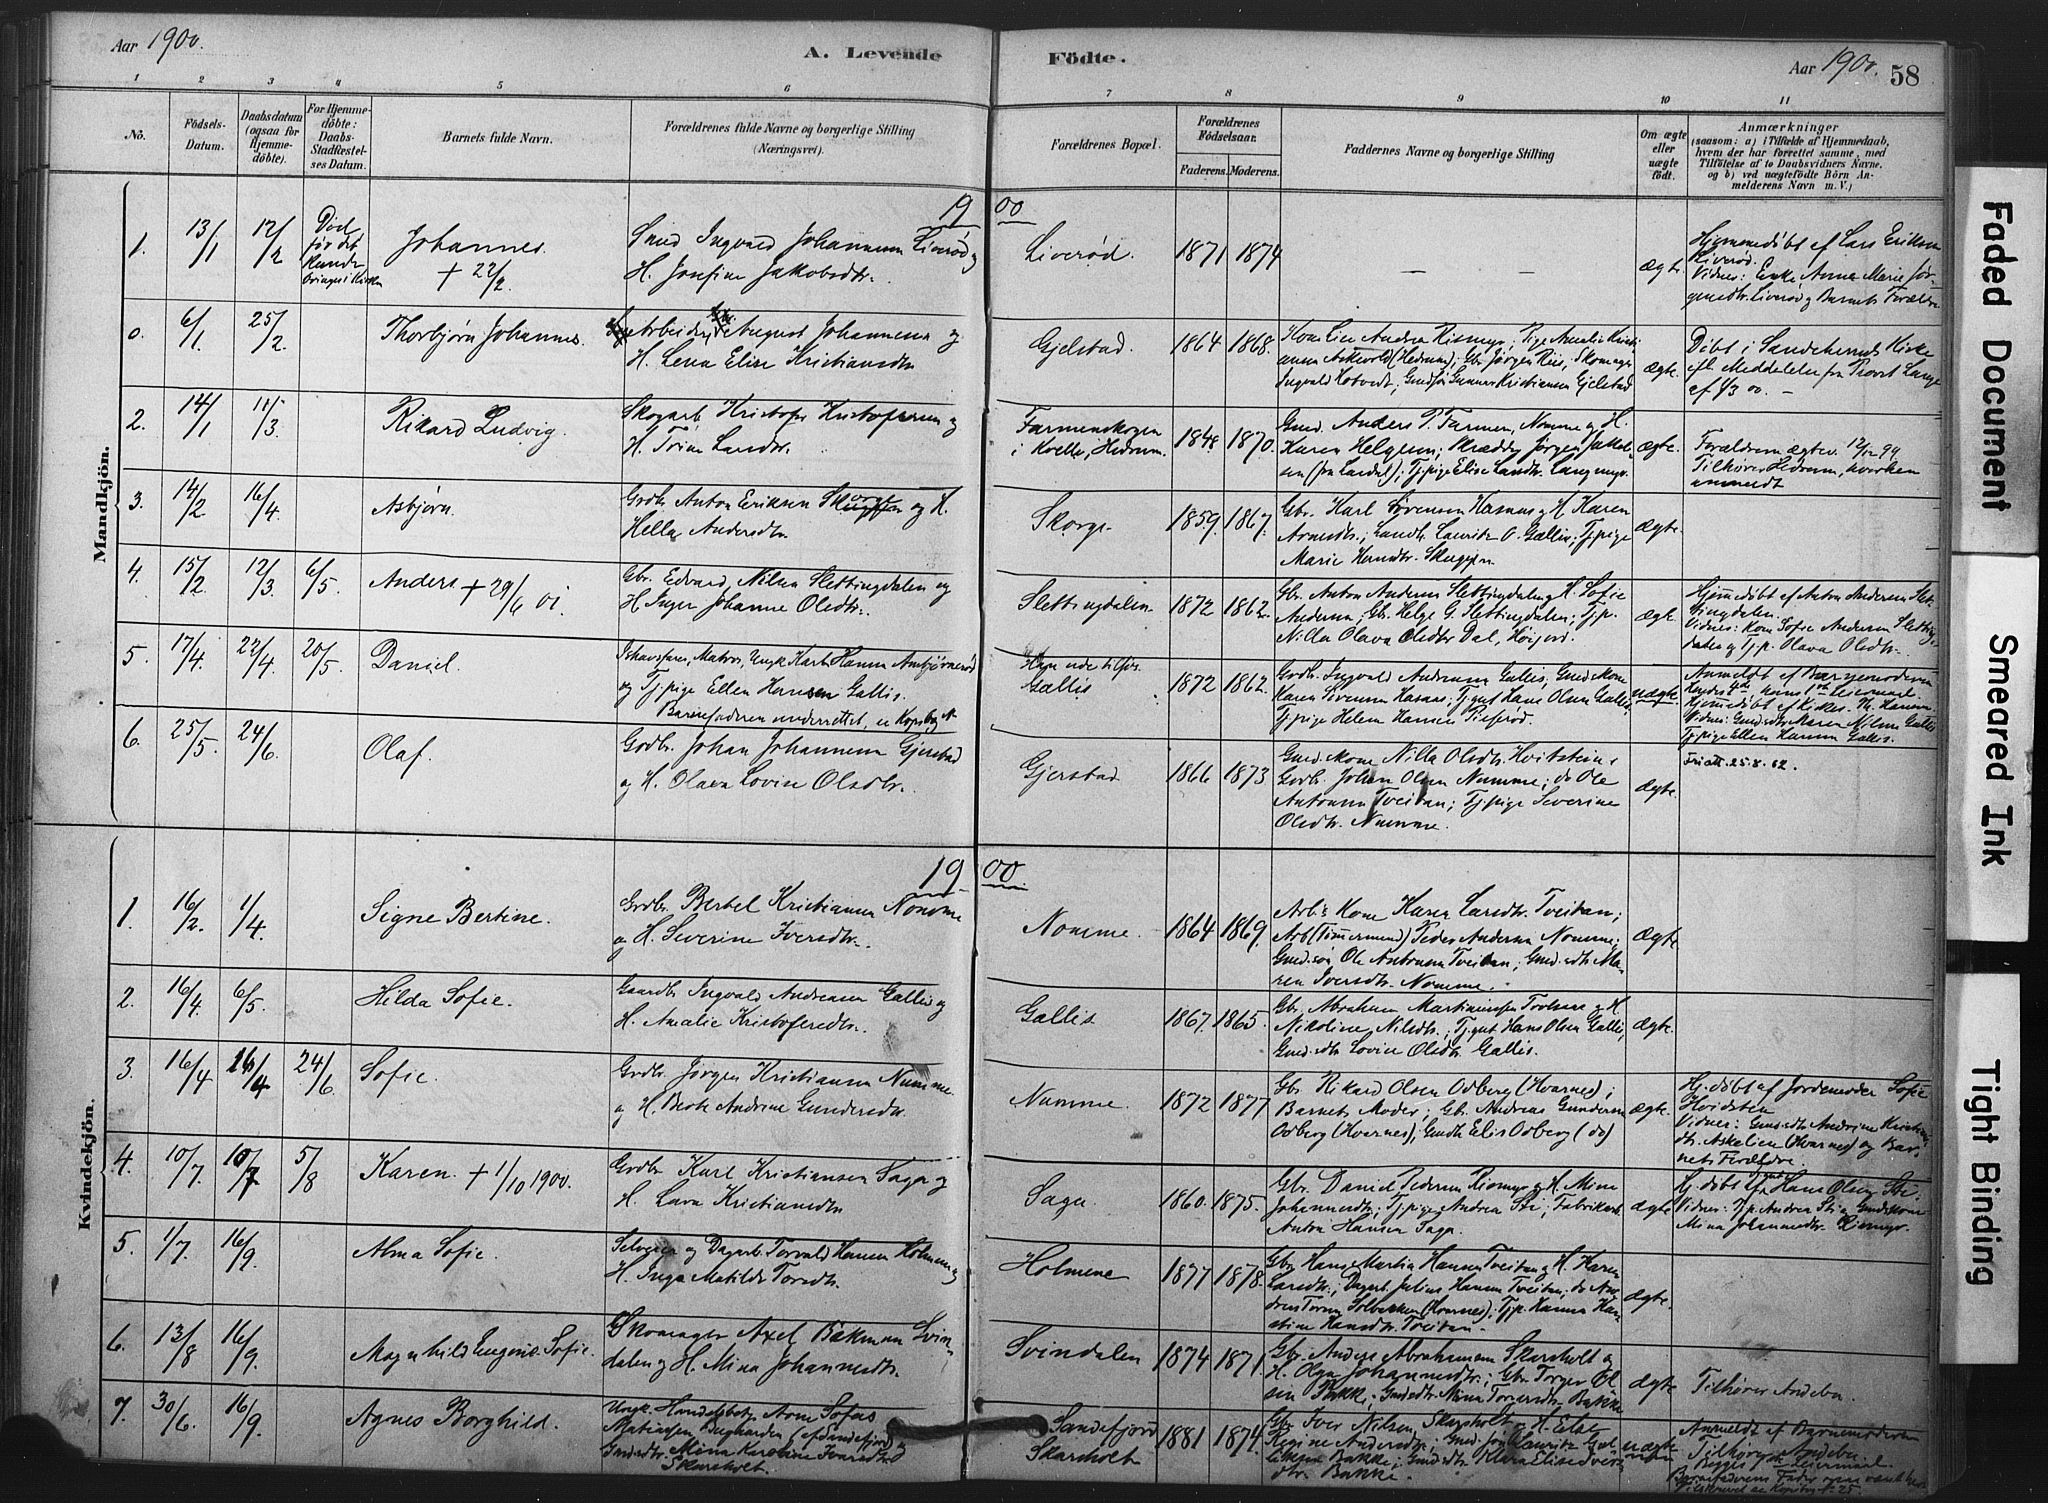 Aar 1900.
A. Levende Födte.
Aar 1900.
58
1 2 3 4 5 6 7 8 9 10 11
No.
Födsels-Datum.
Daabsdatum (ogsaa for Hjemme-döbte).
For Hjemme-döbte: Daabs-Stadfæstel-ses Datum.
Barnets fulde Navn.
Forældrenes fulde Navne og borgerlige Stilling (Næringsvei).
Forældrenes Bopæl.
Forældrenes Födselsaar.
Faderens. Moderens.
Faddernes Navne og borgerlige Stilling
Om ægte eller uægte födt.
Anmærkninger
(saasom: a) i Tilfælde af Hjemmedaab, hvem der har forrettet samme, med Tilföielse af to Daabsvidners Navne, og b) ved uægtefödte Börn An-melderens Navn m. V.)
Mandkjön.
19 00
1. 13/1 12/2 Död før det kunde bringes i Kirken
Johannes. + 22/2.
Smed Ingvald Johannesen Liverød og
H. Josefine Jakobsdtr.
Liverød. 1871 1874 — — ægte.
Hjemmedöbt af Lars Eriksen
Liverød.
Vidner: Enke Anne Marie Jør-
gensdtr. Liverød og Barnets Forældre
0. 6/1. 25/2
Thorbjørn Johannes.
Arbeider August Johannesen og
H. Lena Elise Kristiansdtr
Gjelstad. 1864 1868.
Ingvald Hotvedt; Gmdsøn Gunnar Kristiansen Gjelstad
ægte.
Döbt i Sandeherreds Kirke
efl. Meddelelse fra Provst Lange
af 1/3 00. —
2. 14/1 11/3.
Rikard Ludvig.
Skogarb. Kristofer Kristofersen og
H. Trine Larsdtr.
Farmenskogen
i Kvelle, Hedrum.
1848 1870.
Gmd. Anders P. Farmen, Nomme og H.
Karen Helgesen; Skrædder Jørgen Jakob-
sen (fra Lardal); Tj.pige Elise Larsdtr. Langmyr.
ægte.
Forældrene ægtev. 12/12 99
Tilhører Hedrum, hvorhen
anmeldt
3. 14/2 16/4.
Asbjørn.
Grdbr. Anton Eriksen Skorge og H.
Hella Andersdtr.
Skorge. 1859. 1867.
Gbr. Karl Sørensen Hasaas og H. Karen
Arnesdtr.; Landh. Lauritz O. Gallis; Tj.pige
Marie Hansdtr. Skuggen.
ægte.
4. 15/2. 12/3. 6/5.
Anders + 29/6 01.
Gbr. Edvard Nilsen Slettingdalen og
H. Inger Johanne Olsdtr.
Slettingdalen 1872 1862.
Gbr. Anton Andersen Slettingdalen og H. Sofie
Andersen; Gbr. Helge G. Slettingdalen; Tj.p.
Nilla Olava Olsdtr Dal, Høijord.
ægte.
Hjemmedöbt af Anton Andersen Slet-
tingdalen.
Vidner: Kone Sofie Andersen Sletting-
dalen og Tj.p. Olava Olsdtr.
5. 17/4. 22/4. 20/5.
Daniel.
Ishavsfarer, Matros, Ungk. Karl Hansen Ambjørnrød
og Tj.pige Ellen Hansen Gallis.
Barnefaderen underrettet, se Kopibog
Gallis. 1872 1862.
Grdbr. Ingvald Andresen Gallis; Gmd.skone
Karen Sørensen Hasaas; Tj.gut Hans Olsen Gallis;
Tj.pige Helene Hansen
uægte
Anmeldt af Barnemoderen
Hjemmedöbt af Kirkes. Th. Hansen
Vidner: Gmd.sdtr Maren Nilsen Gallis
Tj.pige Ellen Hansen Gallis.
6. 25/5. 24/6.
Olaf.
Grdbr. Johan Johannesen Gjerstad
og H. Olava Lovise Olsdtr.
Gjerstad 1866 1873.
Gmd.skone Nilla Olsdtr. Hvitstein;
Grdb. Johan Olsen Nomme; do Ole
Antonsen Tveitan; Tj.pige Severine
Olsdtr. Nomme.
ægte.
Friatt. 25.8.62.
Kvindekjön.
19 00
1. 16/2. 1/4.
Signe Bertine.
Grdbr. Bertel Kristiansen Nomme
og H. Severine Iversdtr.
Nomme. 1864 1869.
Arb's Kone Karen Larsdtr. Tveitan;
Arb. (Tømmermand) Peder Andersen Nomme;
Gmd.søn Ole Antonsen Tveitan; Gmd.sdtr Ma-
ren Iversdtr. Nomme.
ægte
2. 16/4. 6/5.
Hilda Sofie.
Gaardbr. Ingvald Andresen Gallis og
H. Amalie Kristofersdtr.
Gallis 1867. 1865.
Gbr. Abraham Martinussen og H.
Nikoline Nilsdtr.; Tj.gut Hans Olsen Gallis;
Gmd.sdtr Lovise Olsdtr Gallis.
ægte
3. 16/4 16/4 24/6
Sofie.
Grdbr. Jørgen Kristiansen Nomme
og H. Berte Andrine Gundersdtr.
Nomme. 1872 1877
Gbr. Rikard Olsen Odberg (Hvarnes);
Barnets Moder; Gbr. Andreas Gundersen
Odberg (Hvarnes); Gmdtr Elis Odberg (do)
ægte.
Hj.döbt af Jordemoder Sofie
Hvidsten
Vidner: Gmd.sdtr Andrine Kristians-
dtr. Askelien (Hvarnes) og Bar-
nets Forældre
4. 10/7. 10/7 5/8
Karen. + 1/10 1900.
Grdbr Karl Kristiansen Saga og
H. Lava Kristiansdtr
Saga 1860. 1875.
Gbr. Daniel Pedersen Risemyr og H. Mina
Johannesdtr.; Tj.pige Andrea Sti; Fabrikarb.
Anton Hansen Saga.
ægte
Hj.döbt af Hans Olsen Sti.
Vidner: Tj.p. Andrea Sti og Gmd.skone
Mina Johannesdtr. Risemyr.
5. 1/7. 16/9.
Alma Sofie.
Selveier og Dagarb. Torvald Hansen Holmene og
H. Inga Matilde Toresdtr.
Holmene 1877 1878.
Gbr. Hans Martin Hansen Tveitan og H. Karen
Larsdtr.; Dagarb. Julius Hansen Tveitan; do An-
dreas Toresen Solbakken (Hvarnes); Tj.p. Hanna Han-
sine Hansdtr. Tveitan.
ægte.
6. 13/8 16/9.
Magnhild Eugenie Sofie.
Skomager Axel Bakman Svin-
dalen og H. Mina Johannesdtr.
Svindalen 1874 1871.
Gbr. Anders Abrahamsen Skarsholt og
H. Olga Johannesdtr.; Gbr. Torger Ol-
sen Bakke; Gmd.sdtr. Mina Torgersdtr. Bakke
ægte
Tilhører Andebu.
7. 30/6. 16/9.
Agnes Borghild.
Ungk. Handelsbetj. Arne Sofus
Matiasen (af Sandefjord) og
Gmd.sdtr. Mina Karoline Iversdtr
Skarsholt.
Sandefjord
Skarsholt
1881 1874.
Gbr. Iver Nilsen Skarsholt og H. Else
Regine Andersdtr.; Gmd.søn Lauritz
Bakke; Gmd.sdtr. Klara Elise
Bakke.
uægte
Anmeldt af Barnemoderen
Tilhører Andebu
Faded Document
Smeared Ink
Tight Binding